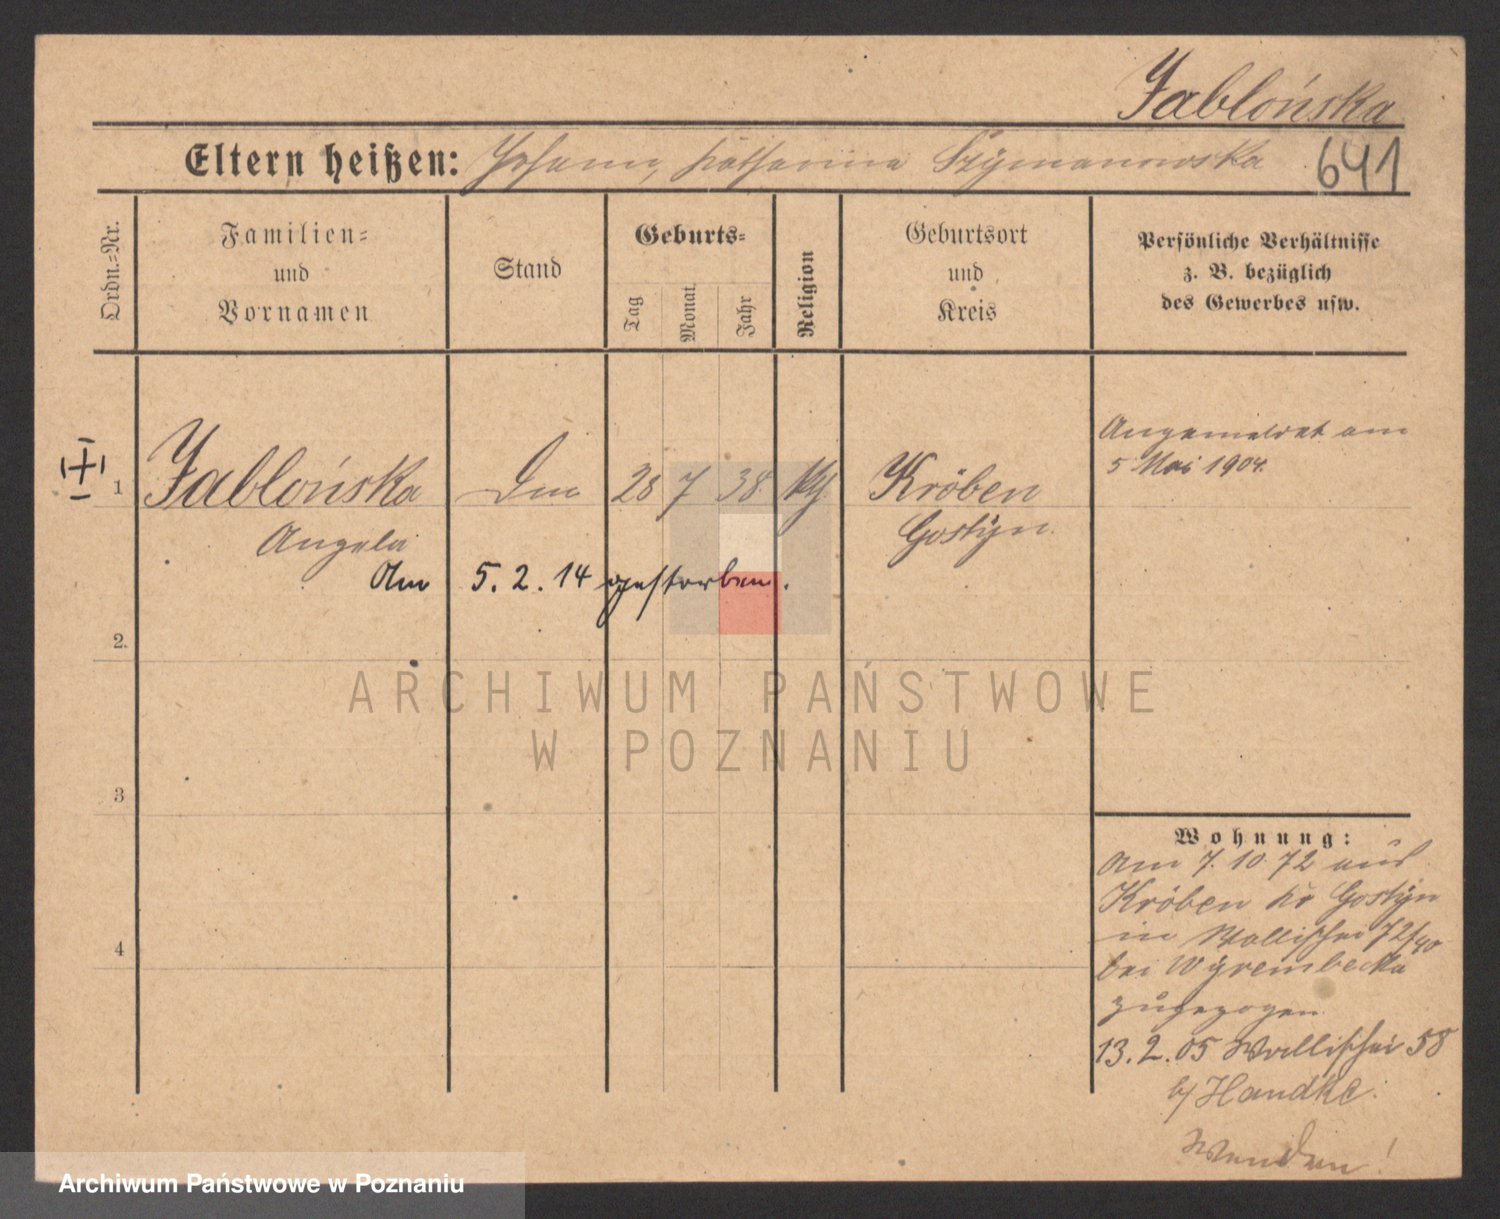 Jabłońska
Eltern heißen: Johann, Katharina Szymanowska 641
Ordn.=Nr.
Familien=
und
Vornamen
Stand
Geburts=
Tag
Monat
Jahr
Religion
Geburtsort
und
Kreis
Persönliche Verhältnisse
z. B. bezüglich
des Gewerbes usw.
Angemeldet am
5 Mai 1904.
1 Jabłońska 28 7 38. Kröben
Angela Gostyn.
Am 5. 2. 14 gestorben.
2.
3
4
Wohnung:
Am 7. 10. 72 aus
Kröben Kr Gostyn
in Wallischei 72/40
bei Wyrembecka
zugezogen
13. 2. 05 Wallischei 58
b/ Handke.
Wenden!
ARCHIWUM PAŃSTWOWE
W POZNANIU
Archiwum Państwowe w Poznaniu